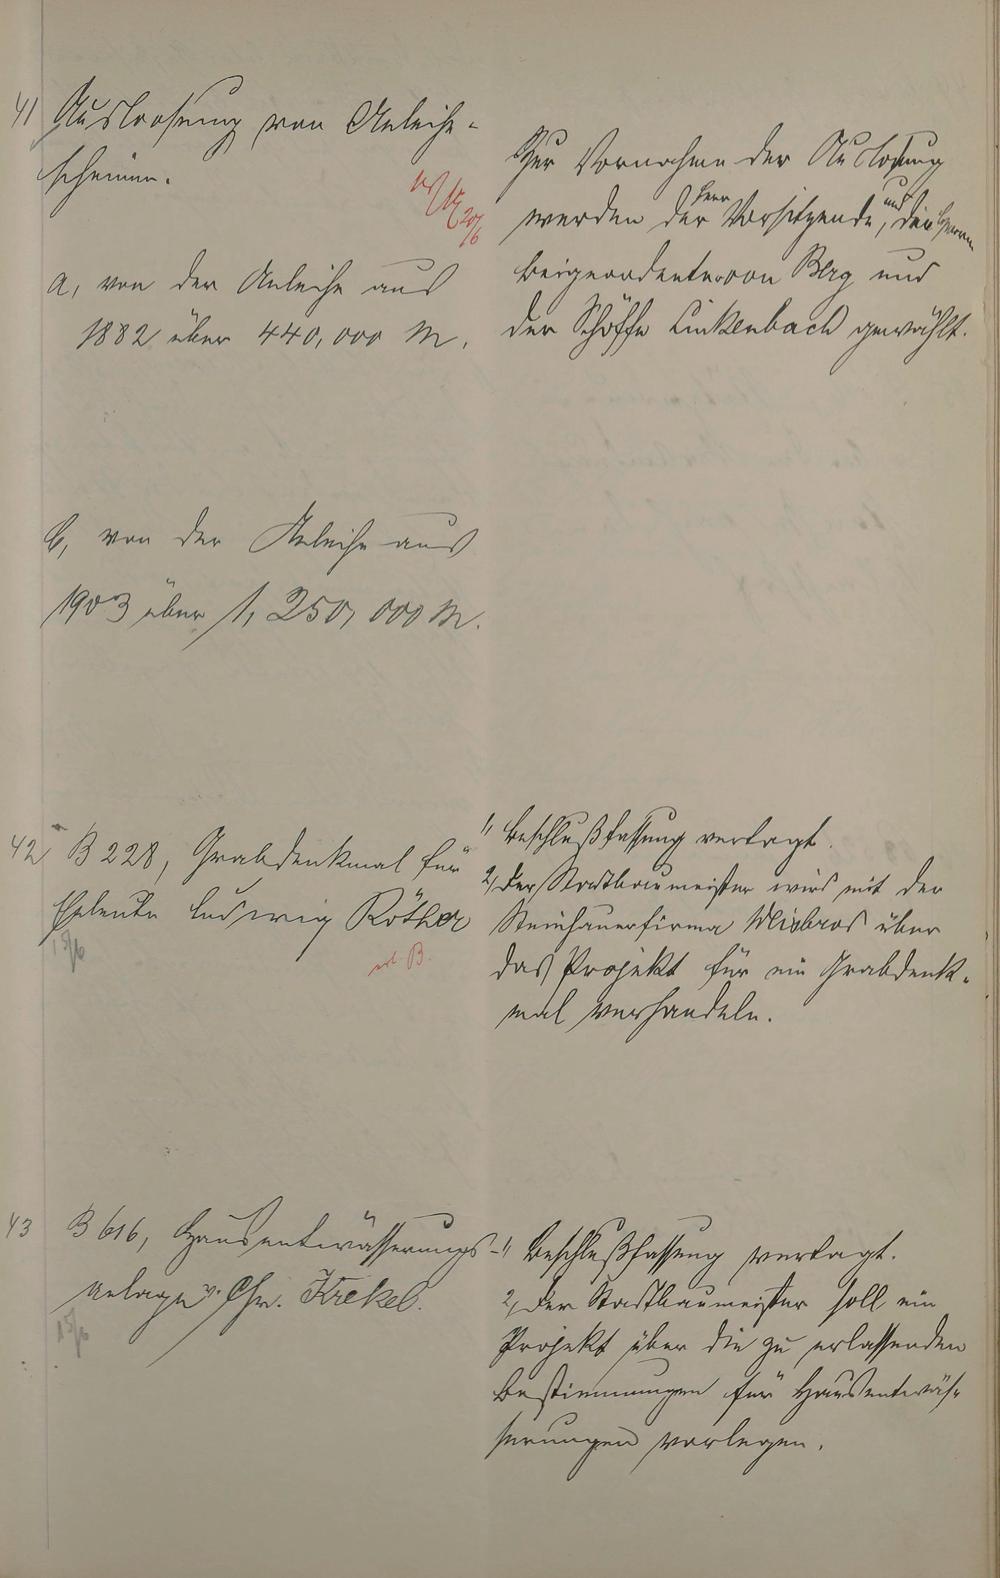 41 Ausloosung von Anleihe-
scheinen.
20/6
a, von der Anleihe aus
1882 über 440,000 M.
Zur Vornahme der Auslosung
werden der Herr Vorsitzende, und die Herren
Beigeordneter von Berg und
der Schöffe Linkenbach gewählt.
b, von der Anleihe aus
1903 über 1,250,000 M.
42 B 228, Grabdenkmal für
Eheleute Ludwig Röther
15/6
erl. B.
1, Beschlußfassung vertagt.
2, Der Stadtbaumeister wird mit der
Steinhauerfirma über
das Projekt für ein Grabdenk-
mal verhandeln.
43 B 616, Hausentwässerungs-
anlage v. Chr. Krekel.
15/6
1, Beschlußfassung vertagt.
2, Der Stadtbaumeister soll ein
Projekt über die zu erlassenden
Bestimmungen für Hausentwäs-
serungen vorlegen.